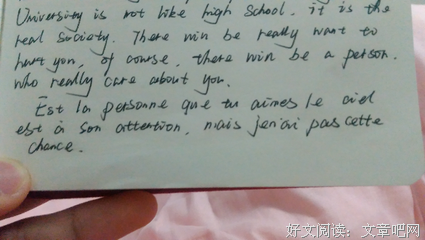 University is not like high School, it is the
real Society. There win be really want to
hurt you, of course, there win be a person.
who really care about you.
Est la personne que tu aimes le ciel
est à son attention, mais jen'ai pas cette
chance.
好文阅读：文章吧网